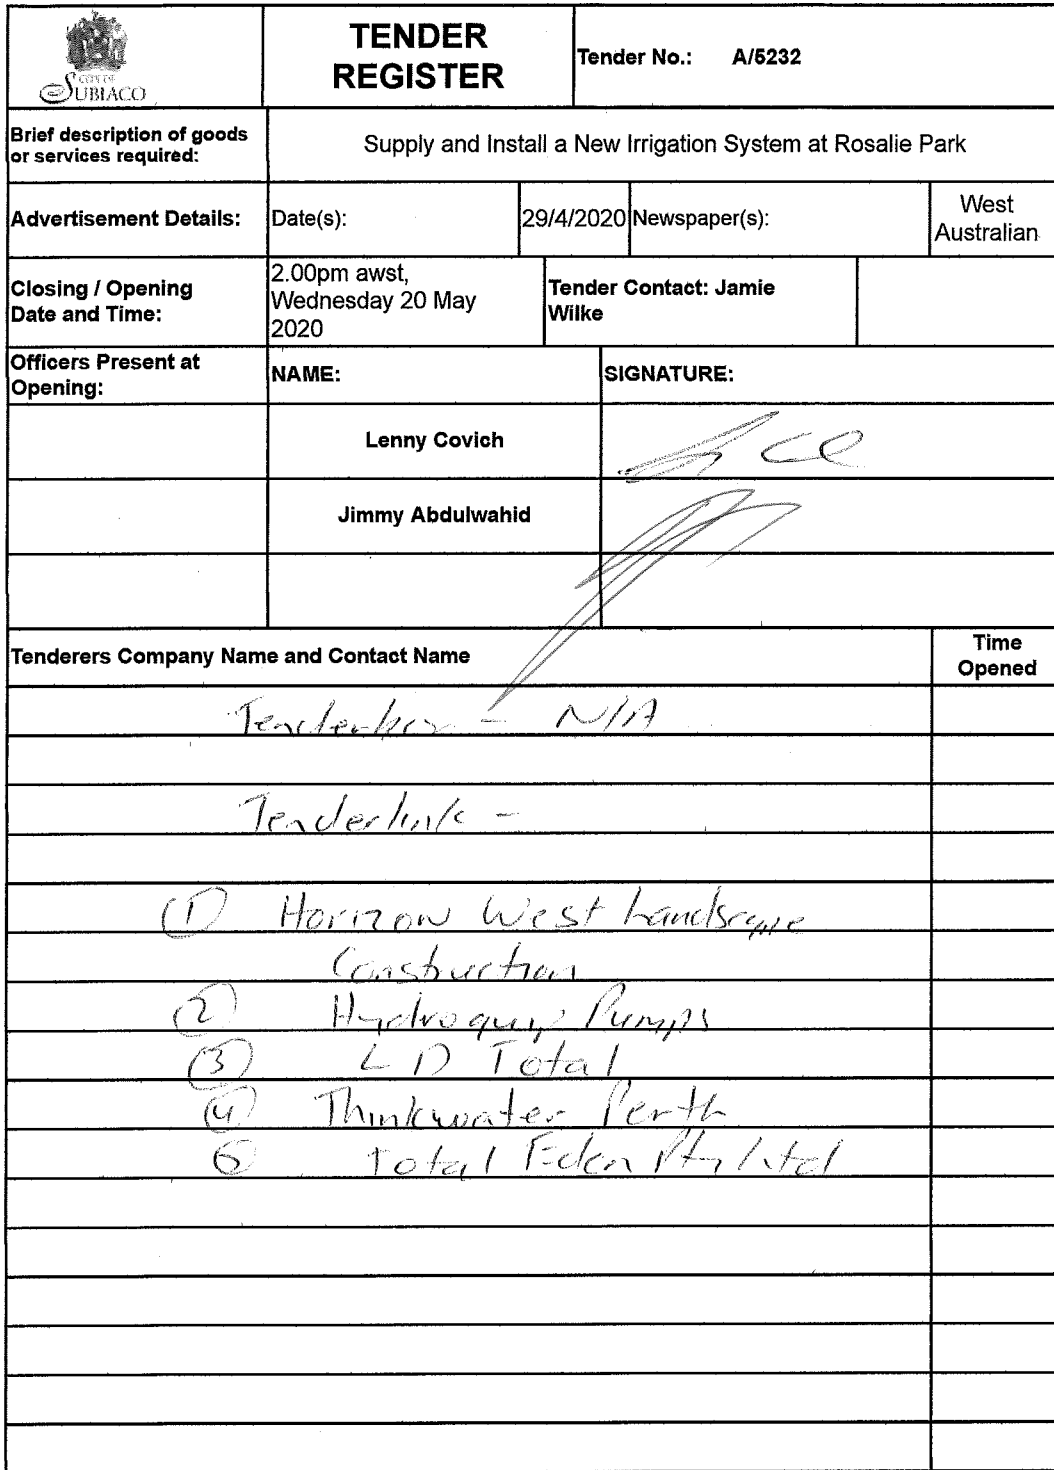 CITY OF
SUBIACO
TENDER
REGISTER
Tender No.: A/5232
Brief description of goods
or services required:
Supply and Install a New Irrigation System at Rosalie Park
Advertisement Details:
Date(s):
29/4/2020
Newspaper(s):
West
Australian
Closing / Opening
Date and Time:
2.00pm awst,
Wednesday 20 May
2020
Tender Contact: Jamie
Wilke
Officers Present at
Opening:
NAME:
SIGNATURE:
Lenny Covich
Jimmy Abdulwahid
Tenderers Company Name and Contact Name
Time
Opened
Tenderbox - N/A
Tenderlink -
① Horizon West Landscape
Construction
② Hydroquip Pumps
③ L D Total
④ Thinkwater Perth
⑤ Total Eden Pty Ltd